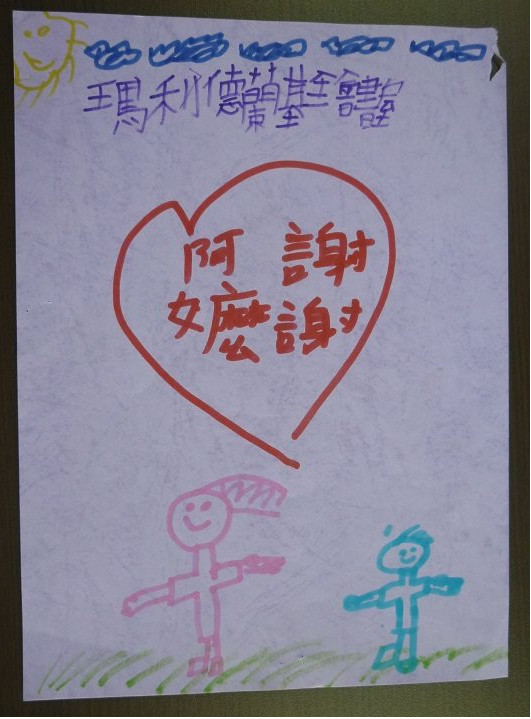 瑪利德蘭基會
謝謝
阿嬤